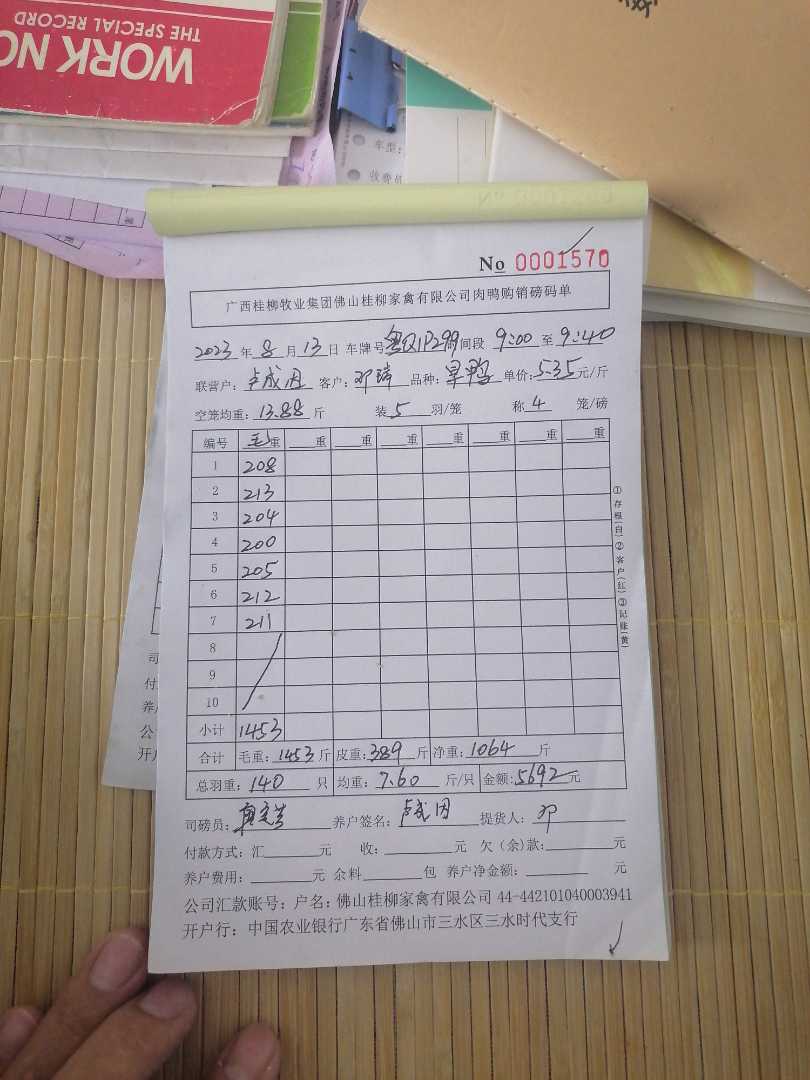 WORK NO
THE SPECIAL RECORD
车型：
收费
No 0001570
广西桂柳牧业集团佛山桂柳家禽有限公司肉鸭购销磅码单
2023 年 8 月 13 日 车牌号 1P299 时间段 9:00 至 9:40
联营户：卢成因 客户：邓瑞 品种：旱鸭 单价：5.35 元/斤
空笼均重：13.88 斤 装 5 羽/笼 称 4 笼/磅
编号 毛重 重 重 重 重 重 重 重
1 208
2 213
3 204
4 200
5 205
6 212
7 211
8
9
10
小计 1453
合计 毛重：1453 斤 皮重：389 斤 净重：1064 斤
总羽重：140 只 均重：7.60 斤/只 金额：5692 元
司磅员： 养户签名：卢成因 提货人：邓
付款方式：汇 元 收： 元 欠（余）款： 元
养户费用： 元 余料 包 养户净金额： 元
公司汇款账号：户名：佛山桂柳家禽有限公司 44-442101040003941
开户行：中国农业银行广东省佛山市三水区三水时代支行
①存根（白）②客户（红）③记账（黄）